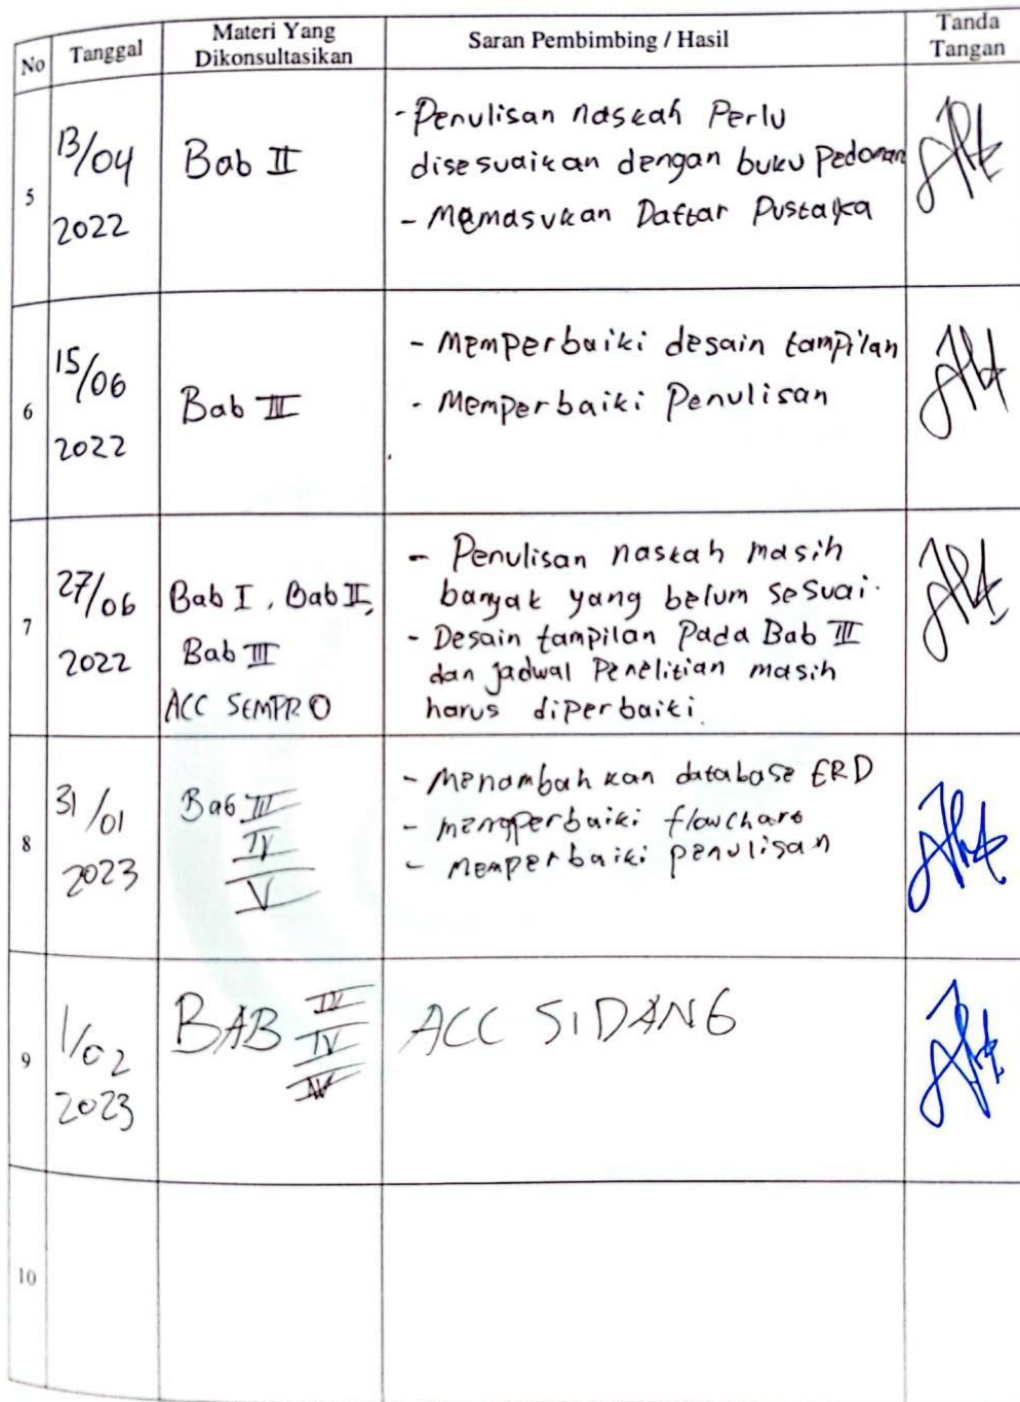 No Tanggal Materi Yang Dikonsultasikan Saran Pembimbing / Hasil Tanda Tangan
5
13/04
2022
Bab II
- Penulisan naskah Perlu
disesuaikan dengan buku Pedoman
- Memasukan Daftar Pustaka
6
15/06
2022
Bab III
- Memperbaiki desain tampilan
- Memperbaiki Penulisan
7
27/06
2022
Bab I, Bab II,
Bab III
ACC SEMPRO
- Penulisan naskah masih
banyak yang belum sesuai.
- Desain tampilan Pada Bab III
dan jadwal Penelitian masih
harus diperbaiki.
8
31/01
2023
Bab III
IV
V
- Menambah kan database ERD
- memperbaiki flowchart
- memperbaiki penulisan
9
1/02
2023
BAB III
IV
ACC SIDANG
10